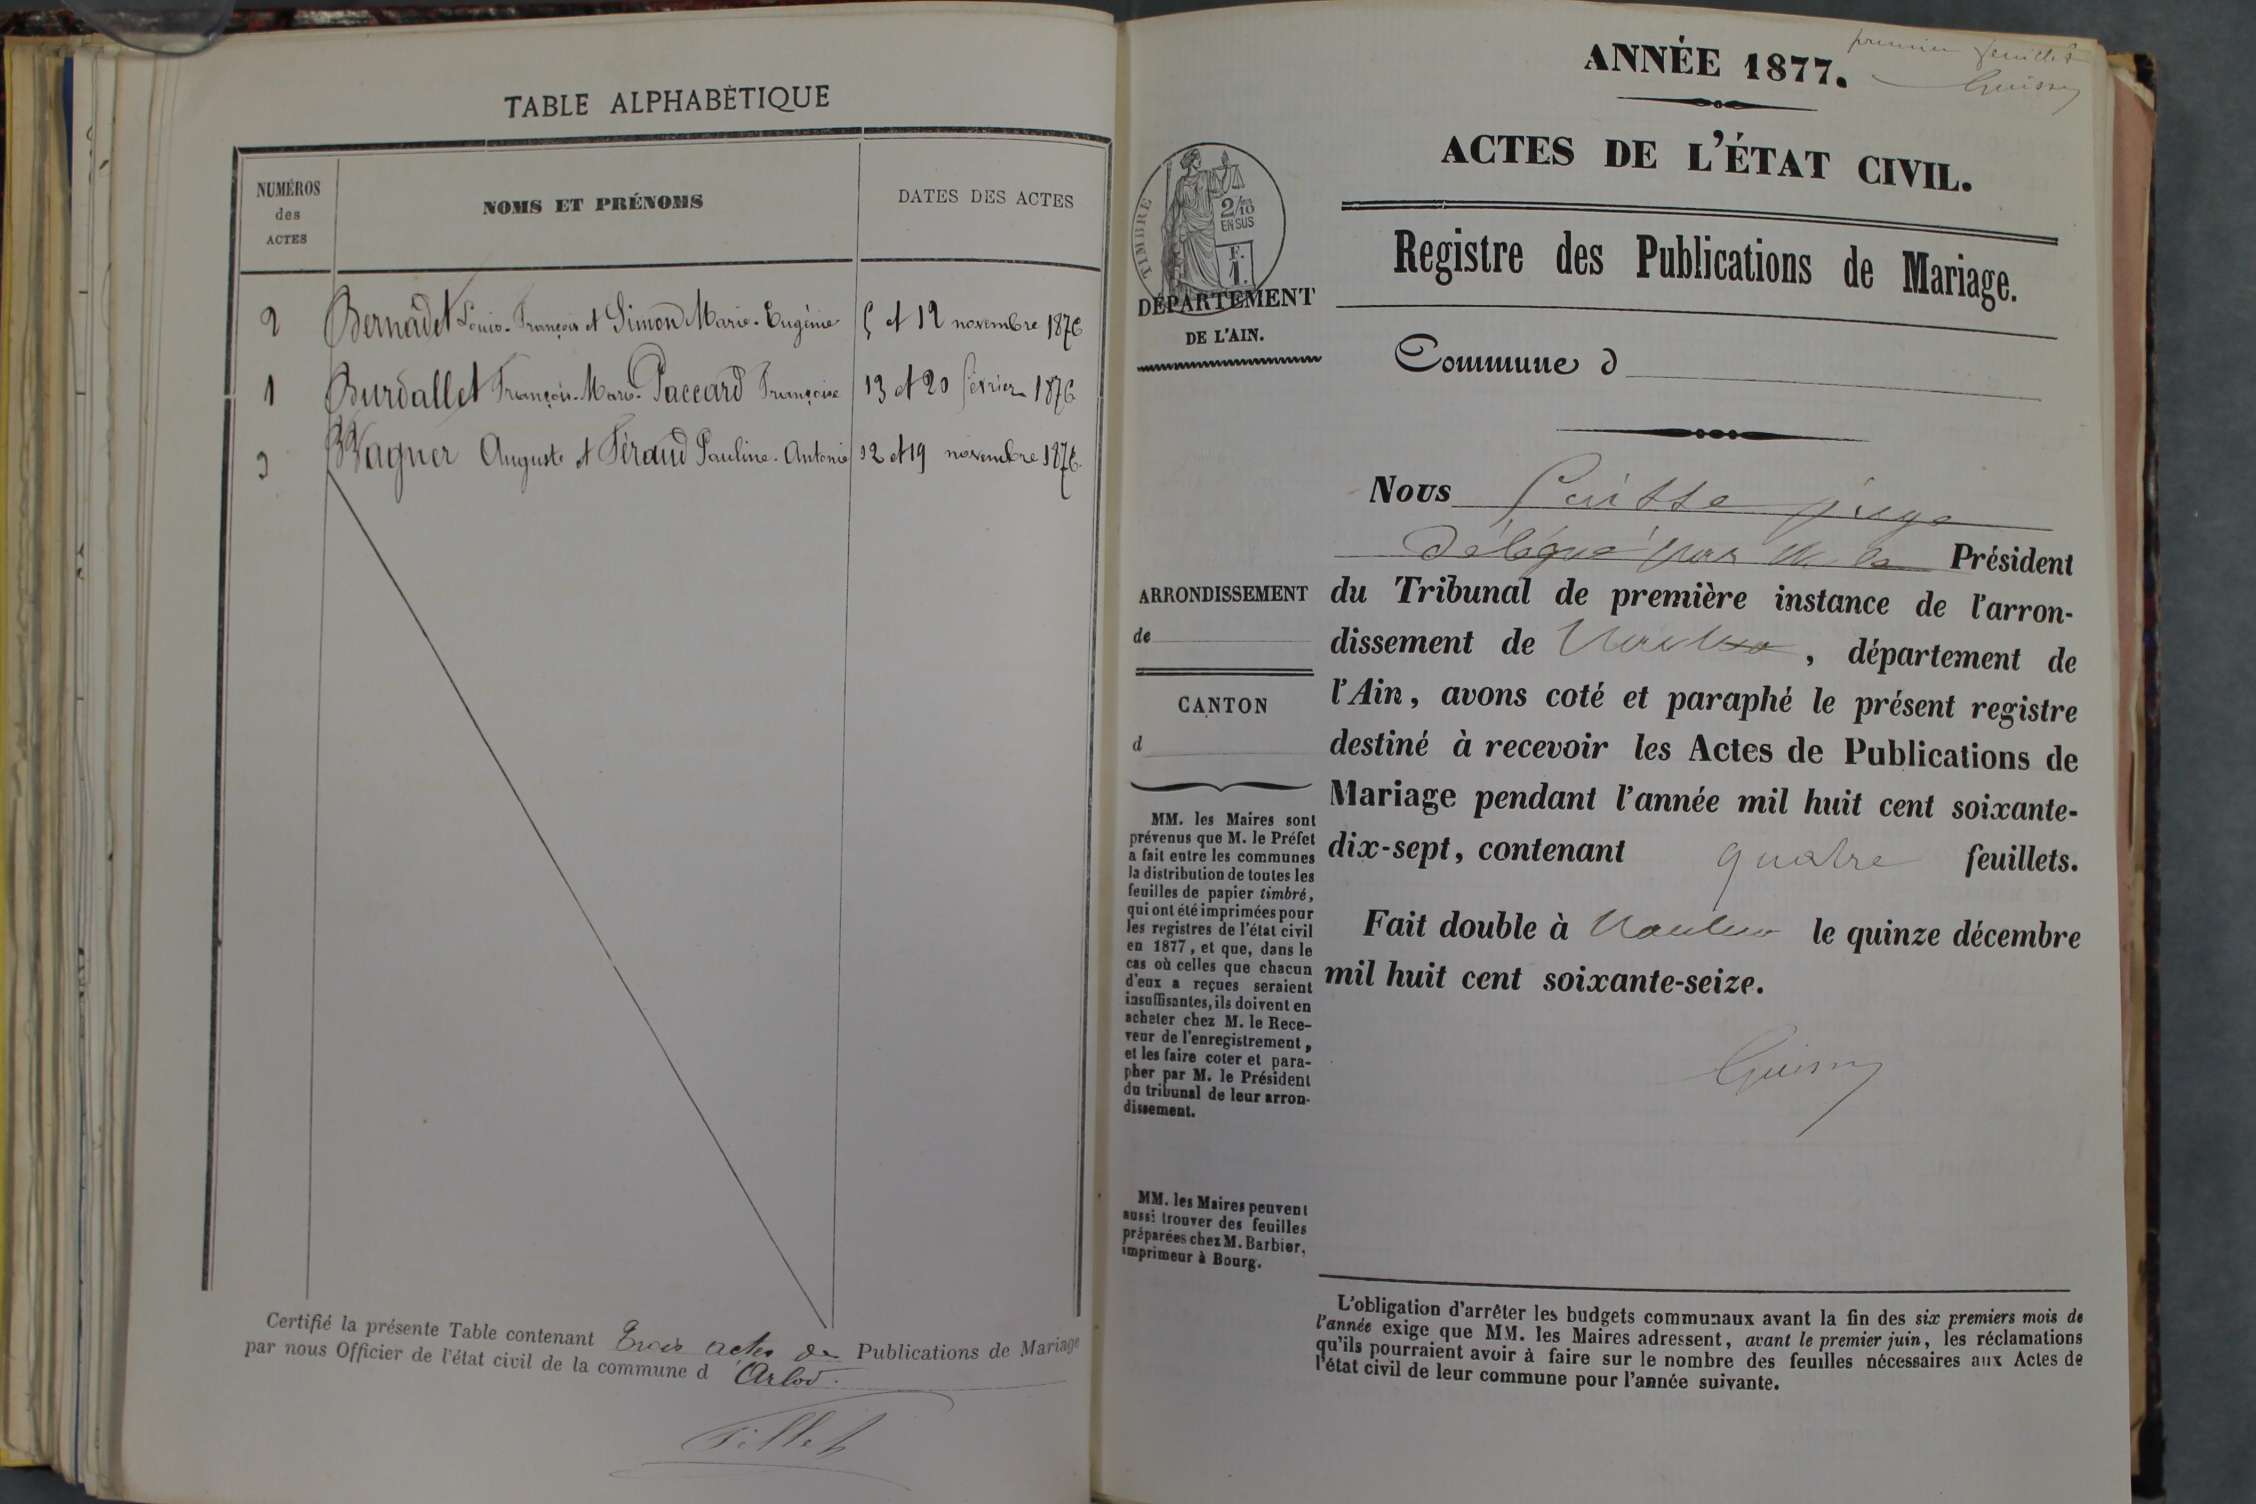 TABLE ALPHABÈTIQUE
NUMÉROS
des
ACTES
NOMS ET PRÉNOMS
DATES DES ACTES
2 Bernadet Louis-François et Simon Marie-Eugénie 5 et 12 novembre 1876
1 Burdallet François-Marie Paccard Françoise 13 et 20 février 1876
3 Wagner Auguste et Féraud Pauline-Antonie 12 et 19 novembre 1876
Certifié la présente Table contenant trois actes de Publications de Mariage
par nous Officier de l'état civil de la commune d Arlod.
Fillet
premier feuillet
ANNÉE 1877.
ACTES DE L'ÉTAT CIVIL.
TIMBRE
2/10
EN SUS
F.
1.
DÉPARTEMENT
DE L'AIN.
Registre des Publications de Mariage.
Commune d
Nous juge
délégué par M. le Président
du Tribunal de première instance de l'arron-
dissement de Nantua, département de
l'Ain, avons coté et paraphé le présent registre
destiné à recevoir les Actes de Publications de
Mariage pendant l'année mil huit cent soixante-
dix-sept, contenant quatre feuillets.
Fait double à Nantua le quinze décembre
mil huit cent soixante-seize.
ARRONDISSEMENT
de
CANTON
d
MM. les Maires sont
prévenus que M. le Préfet
a fait entre les communes
la distribution de toutes les
feuilles de papier timbré,
qui ont été imprimées pour
les registres de l'état civil
en 1877, et que, dans le
cas où celles que chacun
d'eux a reçues seraient
insuffisantes, ils doivent en
acheter chez M. le Rece-
veur de l'enregistrement,
et les faire coter et para-
pher par M. le Président
du tribunal de leur arron-
dissement.
MM. les Maires peuvent
aussi trouver des feuilles
préparées chez M. Barbier,
imprimeur à Bourg.
L'obligation d'arrêter les budgets communaux avant la fin des six premiers mois de
l'année exige que MM. les Maires adressent, avant le premier juin, les réclamations
qu'ils pourraient avoir à faire sur le nombre des feuilles nécessaires aux Actes de
l'état civil de leur commune pour l'année suivante.